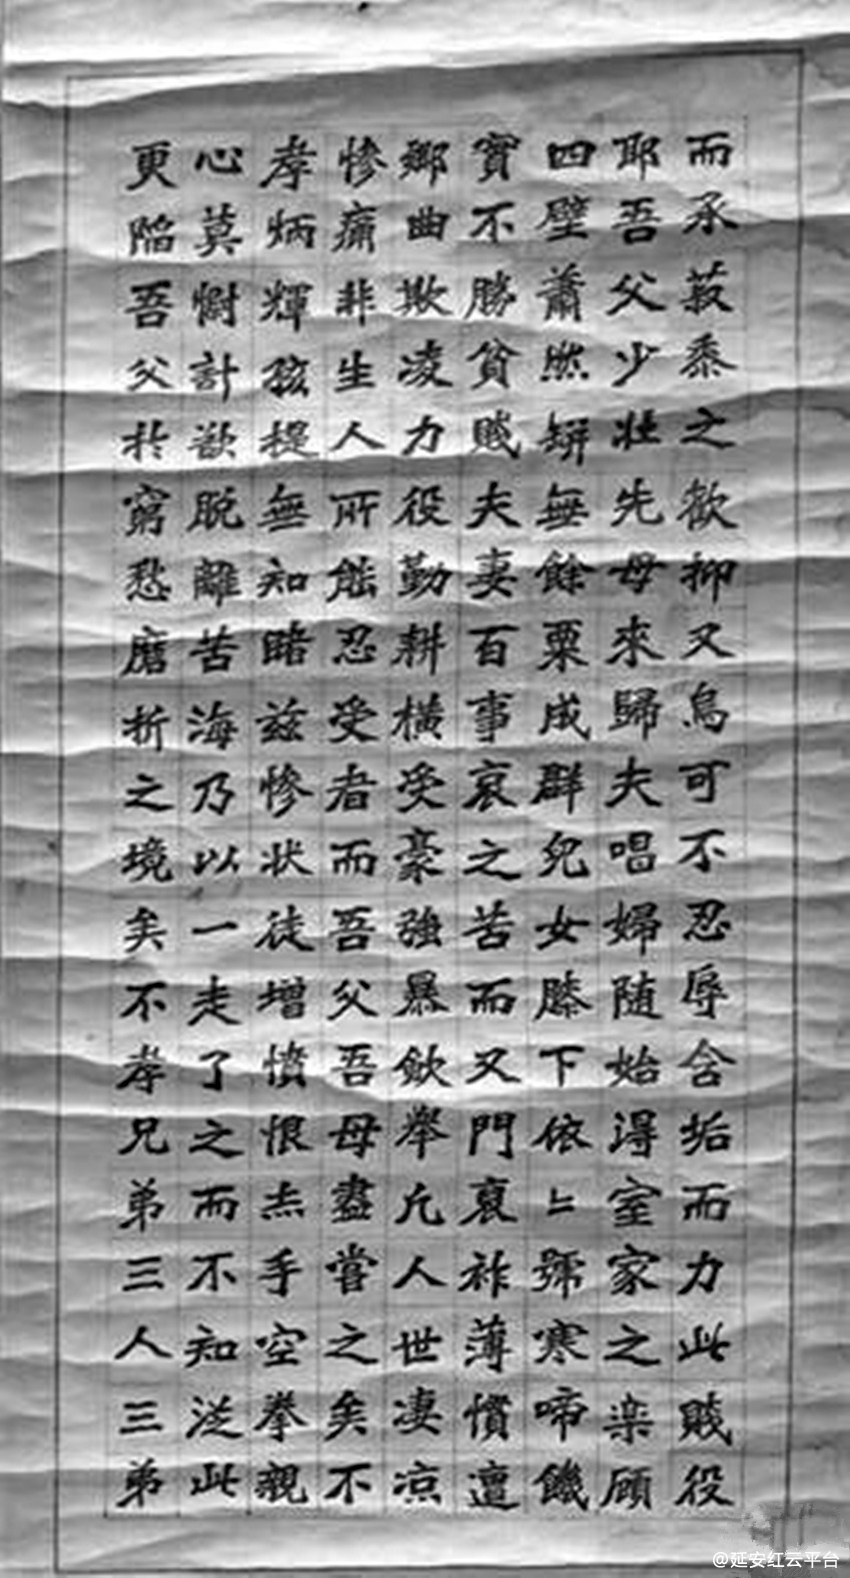 而承菽黍之歡抑又烏可不忍辱含垢而力此賤役
耶吾父少壯先母來歸夫唱婦随始得室家之楽顧
四壁蕭然缾無餘粟成群兒女膝下依依號寒啼饑
實不勝貧賤夫妻百事哀之苦而又門衰祚薄慣遭
鄉曲欺凌力役勤耕橫受豪強暴斂舉凡人世凄凉
慘痛非生人所能忍受者而吾父吾母盡嘗之矣不
孝炳輝孩提無知睹茲慘状徒增憤恨赤手空拳親
心莫慰計欲脫離苦海乃以一走了之而不知從此
更陷吾父於窮愁磨折之境矣不孝兄弟三人三弟
@延安红云平台